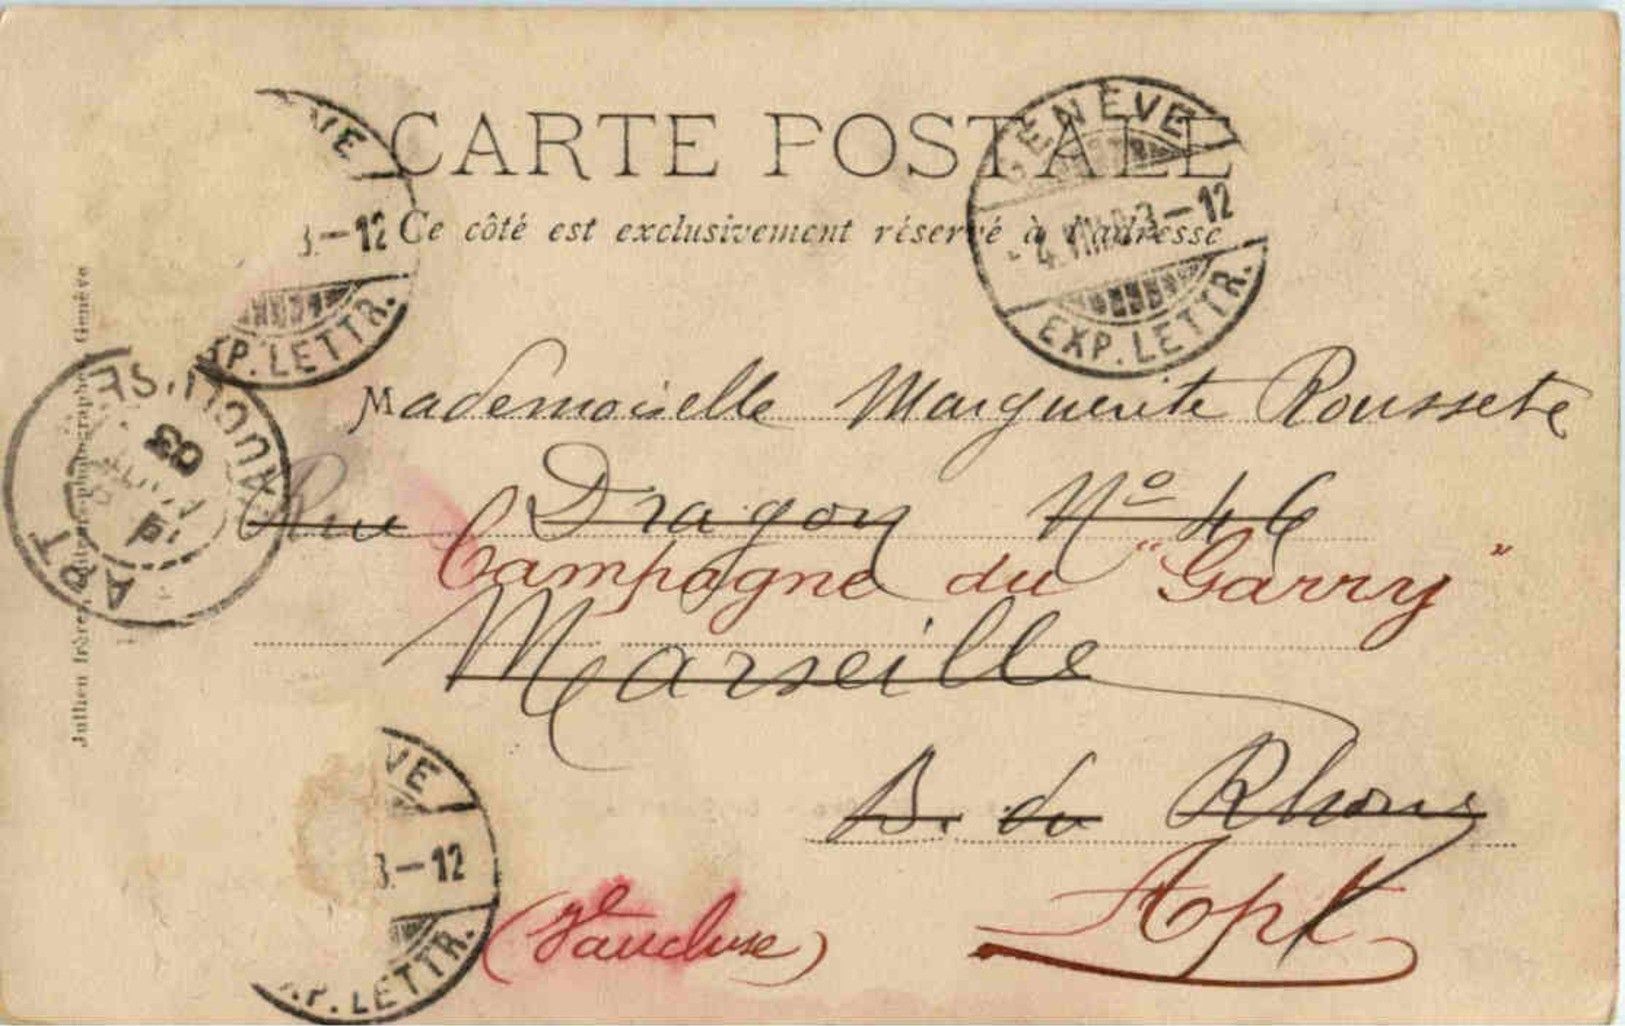 CARTE POSTALE
Ce côté est exclusivement réservé à l'adresse
GENÈVE
-4.VIII.03-12
EXP. LETTR.
VE
3.-12
XP. LETTR.
Jullien frères, photographes, Genève
VAUCLUSE
03
APT
Mademoiselle Marguerite Roussete
Rue Dragon Nº 46
Campagne du "Garry"
Marseille
B. du Rhône
Apt
(Vaucluse)
VE
3.-12
XP. LETTR.